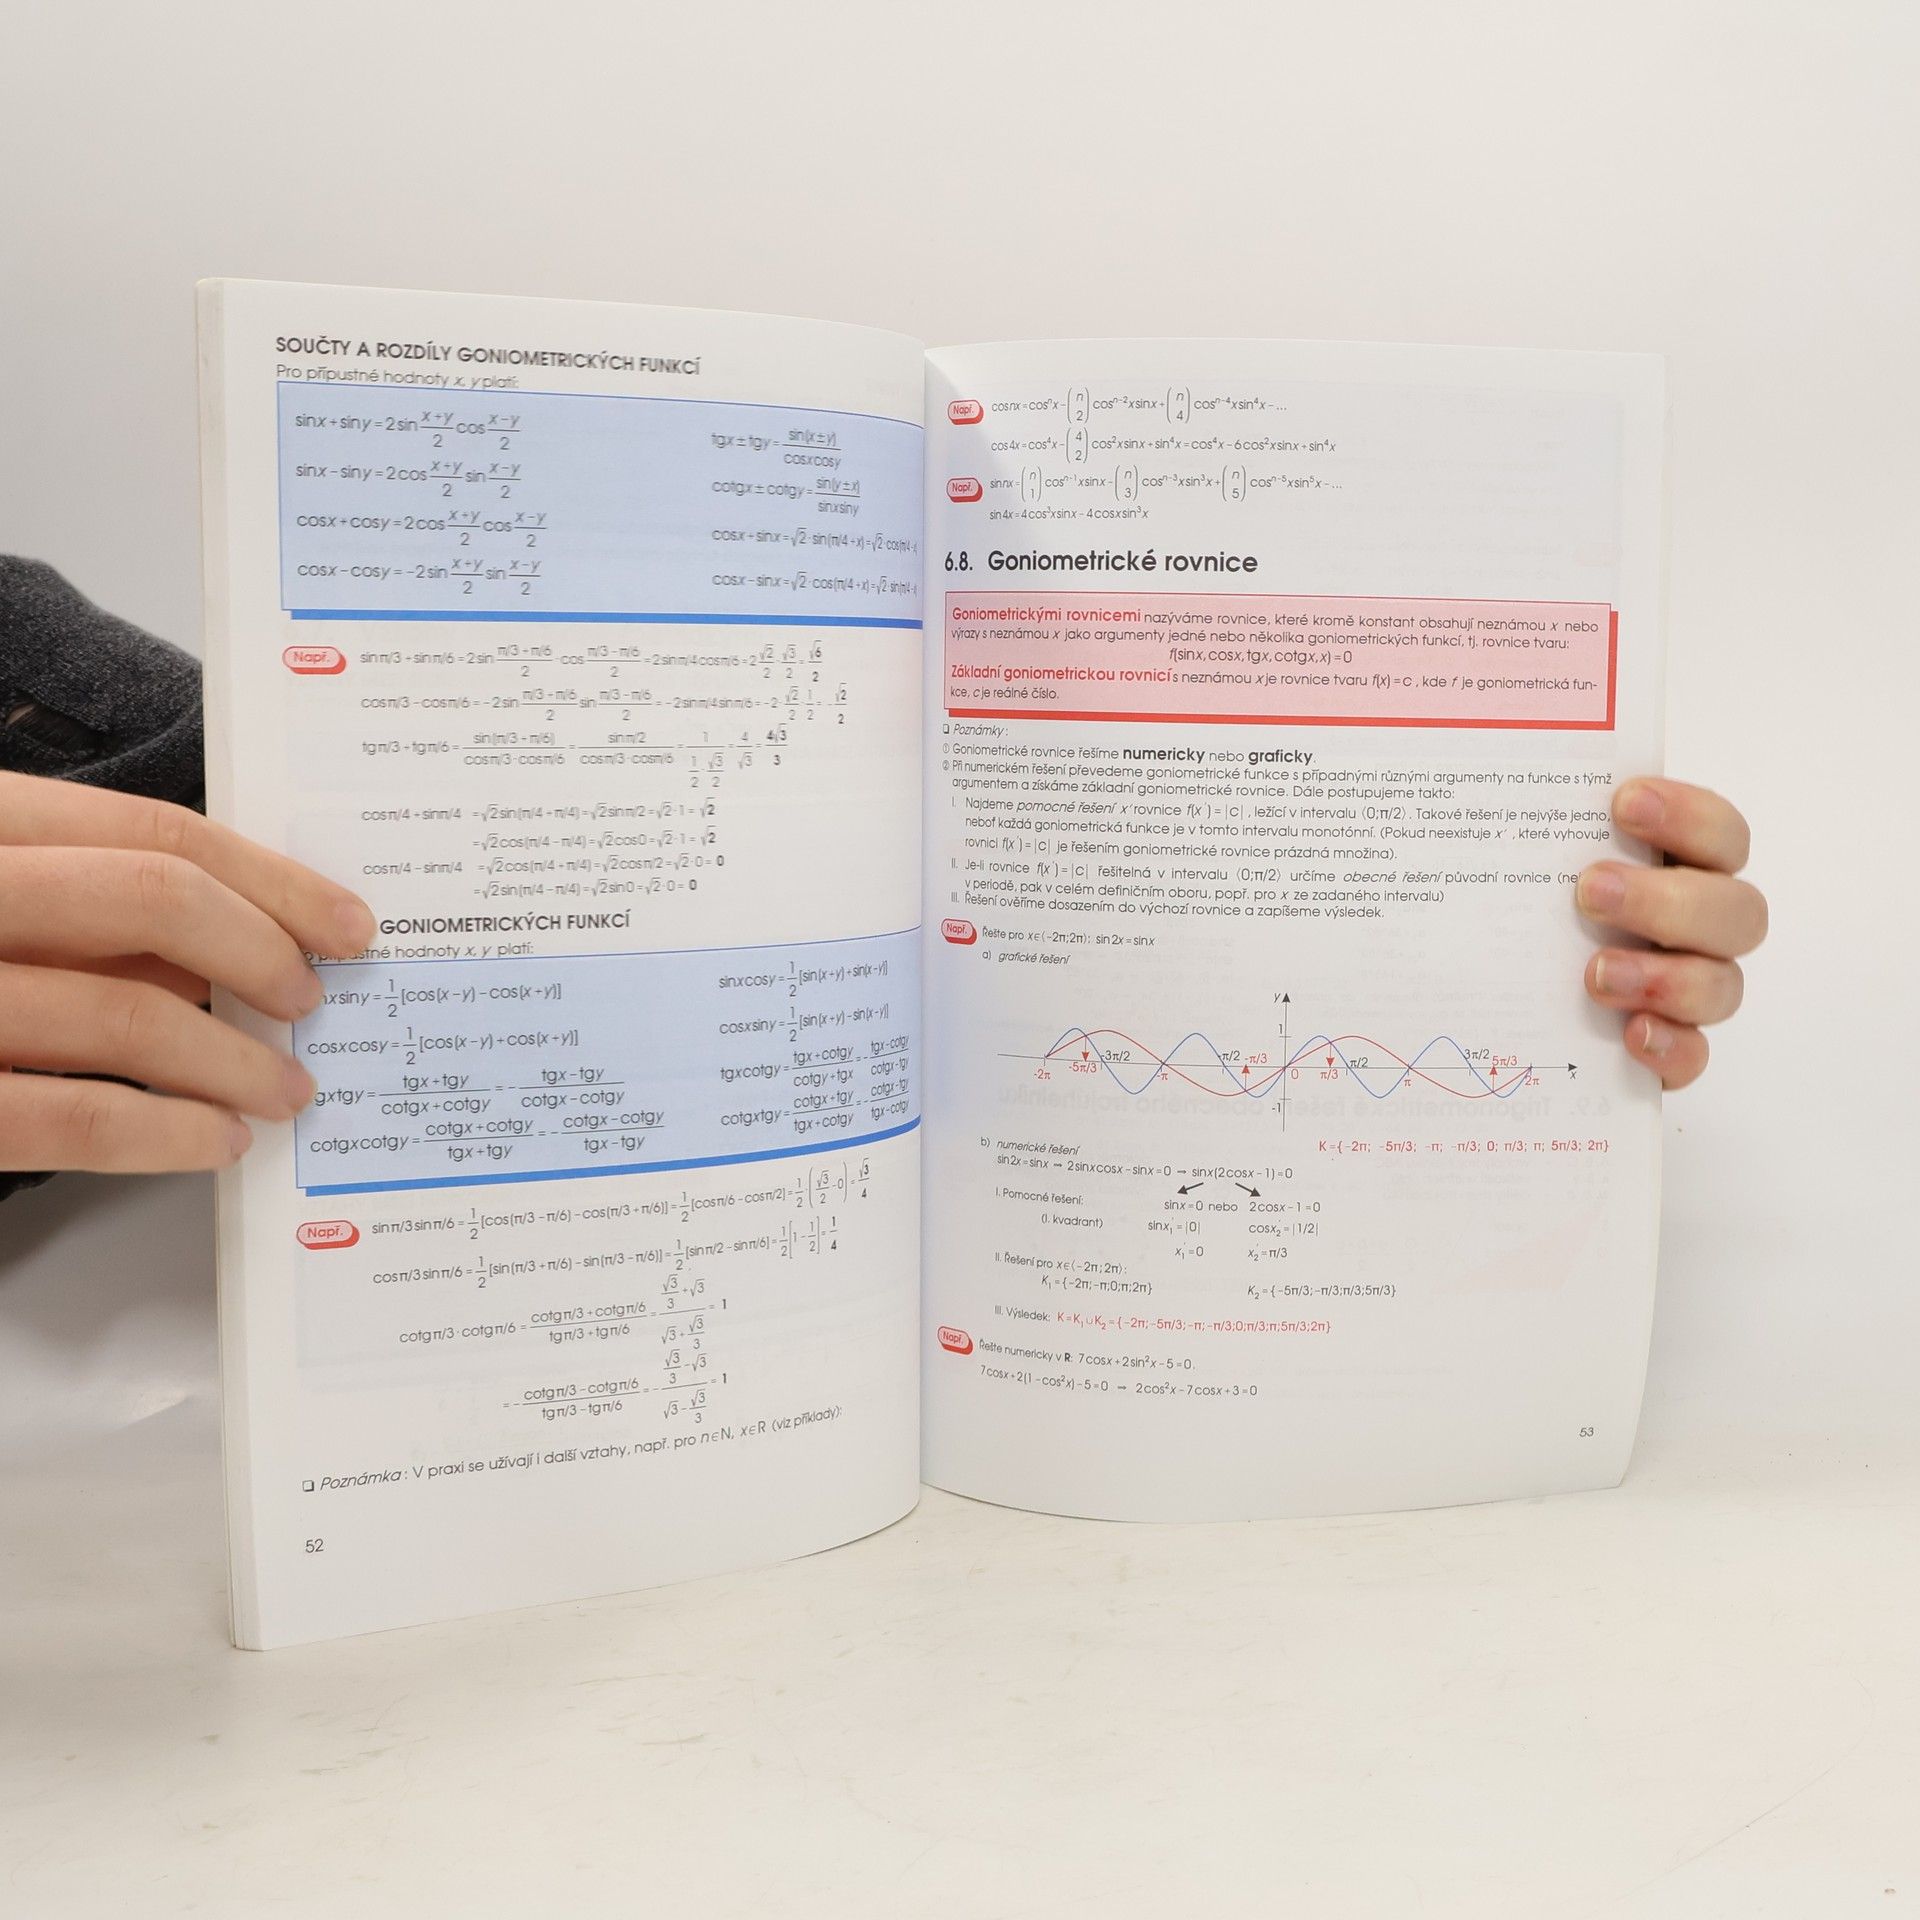 SOUČTY A ROZDÍLY GONIOMETRICKÝCH FUNKCÍ
Pro přípustné hodnoty x, y platí:
sinx+siny=2sin (x+y)/2 cos (x-y)/2
sinx-siny=2cos (x+y)/2 sin (x-y)/2
cosx+cosy=2cos (x+y)/2 cos (x-y)/2
cosx-cosy=-2sin (x+y)/2 sin (x-y)/2
tgx±tgy= sin(x±y)/cosxcosy
cotgx±cotgy= sin(y±x)/sinxsiny
cosx+sinx=√2·sin(π/4+x)=√2·cos(π/4-x)
cosx-sinx=√2·cos(π/4+x)=√2·sin(π/4-x)
Např. sinπ/3+sinπ/6=2sin (π/3+π/6)/2 ·cos (π/3-π/6)/2 =2sinπ/4cosπ/6=2 √2/2 · √3/2 = √6/2
cosπ/3-cosπ/6=-2sin (π/3+π/6)/2 sin (π/3-π/6)/2 =-2sinπ/4sinπ/6=-2· √2/2 · 1/2 =- √2/2
tgπ/3+tgπ/6= sin(π/3+π/6)/cosπ/3·cosπ/6 = sinπ/2/cosπ/3·cosπ/6 = 1/(1/2·√3/2) = 4/√3 = 4√3/3
cosπ/4+sinπ/4 =√2sin(π/4+π/4)=√2sinπ/2=√2·1=√2
=√2cos(π/4-π/4)=√2cos0=√2·1=√2
cosπ/4-sinπ/4 =√2cos(π/4+π/4)=√2cosπ/2=√2·0=0
=√2sin(π/4-π/4)=√2sin0=√2·0=0
GONIOMETRICKÝCH FUNKCÍ
hodnoty x, y platí:
xsiny= 1/2 [cos(x-y)-cos(x+y)]
cosxcosy= 1/2 [cos(x-y)+cos(x+y)]
gxtgy= (tgx+tgy)/(cotgx+cotgy) =- (tgx-tgy)/(cotgx-cotgy)
cotgxcotgy= (cotgx+cotgy)/(tgx+tgy) =- (cotgx-cotgy)/(tgx-tgy)
sinxcosy= 1/2 [sin(x+y)+sin(x-y)]
cosxsiny= 1/2 [sin(x+y)-sin(x-y)]
tgxcotgy= (tgx+cotgy)/(cotgy+tgx) =- (tgx-cotgy)/(cotgx-tgy)
cotgxtgy= (cotgx+tgy)/(tgx+cotgy) =- (cotgx-tgy)/(tgx-cotgy)
Např. sinπ/3sinπ/6= 1/2 [cos(π/3-π/6)-cos(π/3+π/6)]= 1/2 [cosπ/6-cosπ/2]= 1/2 ·(√3/2 -0)= √3/4
cosπ/3sinπ/6= 1/2 [sin(π/3+π/6)-sin(π/3-π/6)]= 1/2 [sinπ/2-sinπ/6]= 1/2 [1- 1/2]= 1/4
cotgπ/3·cotgπ/6= (cotgπ/3+cotgπ/6)/(tgπ/3+tgπ/6) = (√3/3+√3)/(√3+√3/3) =1
=- (cotgπ/3-cotgπ/6)/(tgπ/3-tgπ/6) =- (√3/3-√3)/(√3-√3/3) =1
❏ Poznámka: V praxi se užívají i další vztahy, např. pro n∈N, x∈R (viz příklady):
52
Např. cosnx=cosⁿx-(n 2)cosⁿ⁻²xsinx+(n 4)cosⁿ⁻⁴xsin⁴x-...
cos4x=cos⁴x-(4 2)cos²xsinx+sin⁴x=cos⁴x-6cos²xsinx+sin⁴x
Např. sinnx=(n 1)cosⁿ⁻¹xsinx-(n 3)cosⁿ⁻³xsin³x+(n 5)cosⁿ⁻⁵xsin⁵x-...
sin4x=4cos³xsinx-4cosxsin³x
6.8. Goniometrické rovnice
Goniometrickými rovnicemi nazýváme rovnice, které kromě konstant obsahují neznámou x nebo
výrazy s neznámou x jako argumenty jedné nebo několika goniometrických funkcí, tj. rovnice tvaru:
f(sinx,cosx,tgx,cotgx,x)=0
Základní goniometrickou rovnicí s neznámou x je rovnice tvaru f(x)=c, kde f je goniometrická fun-
kce, c je reálné číslo.
❏ Poznámky:
① Goniometrické rovnice řešíme numericky nebo graficky.
② Při numerickém řešení převedeme goniometrické funkce s případnými různými argumenty na funkce s týmž
argumentem a získáme základní goniometrické rovnice. Dále postupujeme takto:
I. Najdeme pomocné řešení x′ rovnice f(x′)=|c|, ležící v intervalu ⟨0;π/2⟩. Takové řešení je nejvýše jedno,
neboť každá goniometrická funkce je v tomto intervalu monotónní. (Pokud neexistuje x′, které vyhovuje
rovnici f(x′)=|c| je řešením goniometrické rovnice prázdná množina).
II. Je-li rovnice f(x′)=|c| řešitelná v intervalu ⟨0;π/2⟩ určíme obecné řešení původní rovnice
v periodě, pak v celém definičním oboru, popř. pro x ze zadaného intervalu)
III. Řešení ověříme dosazením do výchozí rovnice a zapíšeme výsledek.
Např. Řešte pro x∈⟨-2π;2π⟩: sin2x=sinx
a) grafické řešení
y
1
-2π -5π/3 -3π/2 -π -π/2 -π/3 0 π/3 π/2 π 3π/2 5π/3 2π x
-1
K={-2π; -5π/3; -π; -π/3; 0; π/3; π; 5π/3; 2π}
b) numerické řešení
sin2x=sinx → 2sinxcosx-sinx=0 → sinx(2cosx-1)=0
I. Pomocné řešení: sinx=0 nebo 2cosx-1=0
(I. kvadrant) sinx₁′=|0| cosx₂′=|1/2|
x₁′=0 x₂′=π/3
II. Řešení pro x∈⟨-2π;2π⟩:
K₁={-2π;-π;0;π;2π} K₂={-5π/3;-π/3;π/3;5π/3}
III. Výsledek: K=K₁∪K₂={-2π;-5π/3;-π;-π/3;0;π/3;π;5π/3;2π}
Např. Řešte numericky v R: 7cosx+2sin²x-5=0.
7cosx+2(1-cos²x)-5=0 → 2cos²x-7cosx+3=0
53